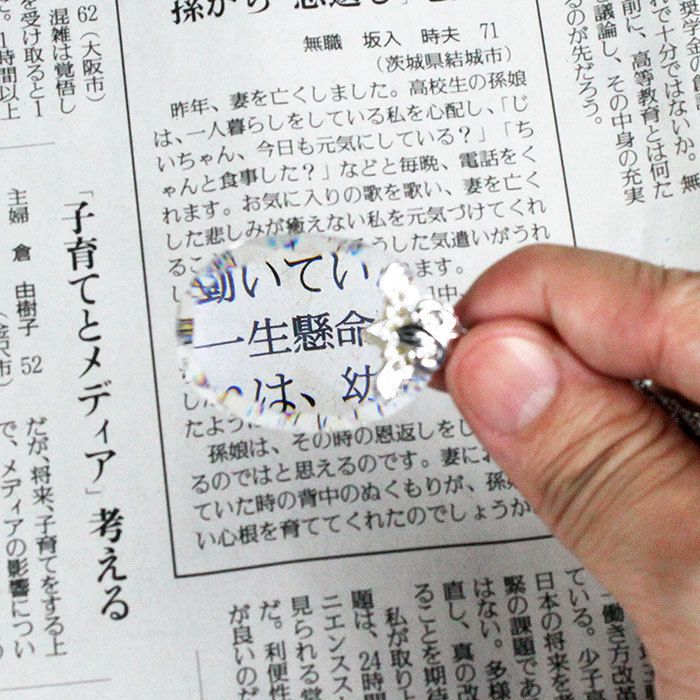 孫から
無職 坂入 時夫 71
(茨城県結城市)
昨年、妻を亡くしました。高校生の孫娘
は、一人暮らしをしている私を心配し、「じ
いちゃん、今日も元気にしている?」「ち
ゃんと食事した?」などと毎晩、電話をく
れます。お気に入りの歌を歌い、妻を亡く
した悲しみが癒えない私を元気づけてくれ
るこ うした気遣いがうれ
ます。
動いてい
一生懸命
は、幼
たよう
孫娘は、その時の恩返しをし
るのではと思えるのです。妻にお
ていた時の背中のぬくもりが、孫
い心根を育ててくれたのでしょうか
れで十分ではないか。無
前に、高等教育とは何た
議論し、その中身の充実
るのが先だろう。
62(大阪市)
混雑は覚悟し
を受け取ると1
。1時間以上
「子育てとメディア」考える
主婦 倉 由樹子 52
だが、将来、子育てをする上
で、メディアの影響につい
働き方改
ている。少子
日本の将来を
緊の課題であ
はない。多様
直し、真の改
ることを期待
私が取り上
題は、24時間
ニエンスス
見られる営
だ。利便性
が良いのだ